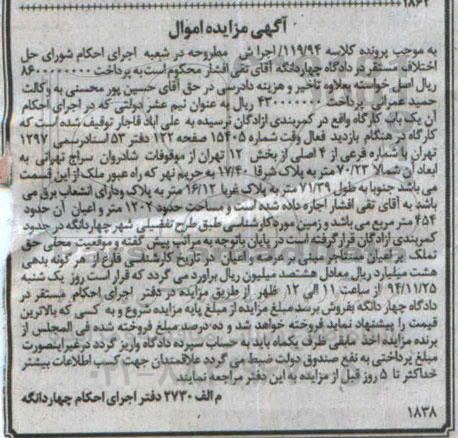 ۱۸۶۲
آگهی مزایده اموال
به موجب پرونده کلاسه ۱۱۹/۹۴/ اجرا ش مطروحه در شعبه اجرای احکام شورای حل
اختلاف مستقر در دادگاه چهاردانگه آقای تقی افشار محکوم است به پرداخت ۸۶۰۰۰۰۰۰۰
ریال اصل خواسته بعلاوه تاخیر و هزینه دادرسی در حق آقای حسین پور محسنی به وکالت
حمید عمرانی پرداخت ۴۳۰۰۰۰۰۰ ریال به عنوان نیم عشر دولتی که در اجرای احکام
آن یک باب کارگاه واقع در کمربندی آزادگان نرسیده به علی آباد قاجار توقیف شده است که
کارگاه در هنگام بازدید فعال وقت شماره ۱۵۴۰۵ صفحه ۱۲۲ دفتر ۵۳ اسناد رسمی ۱۲۹۷
تهران با شماره فرعی از ۴ اصلی از بخش ۱۲ تهران از موقوفات شادروان سراج تهرانی به
ابعاد آن شمالا ۷۰/۲۳ متر به پلاک شرقا ۱۷/۴ به حریم نهر که راه عبور ملک از این قسمت
می باشد جنوبا به طول ۷۱/۳۹ متر به پلاک غربا ۱۶/۱۲ متر به پلاک ودارای انشعاب برق می
باشد به آقای تقی افشار اجاره داده شده است و مساحت حدود ۱۲۰۲ متر و اعیان آن حدود
۴۵۴ متر مربع می باشد و زمین مورد کارشناسی طبق طرح تفصیلی شهر چهاردانگه در حدود
کمربندی آزادگان قرار گرفته است در پایان باتوجه به مراتب پیش گفته و موقعیت محلی حق
تملک بر اعیان مستاجر مبنی بر عرصه و اعیان در تاریخ کارشناسی فارغ از هر گونه بدهی
هشت میلیارد ریال معادل هشتصد میلیون ریال براورد می گردد که قرار است روز یک شنبه
۹۴/۱۱/۲۵ از ساعت ۱۱ الی ۱۲ ظهر از طریق مزایده در دفتر اجرای احکام مستقر در
دادگاه چهار دانگه بفروش برسد مبلغ مزایده از مبلغ پایه مزایده شروع و به کسی که بالاترین
قیمت را پیشنهاد نماید فروخته خواهد شد و ده درصد مبلغ فروخته شده فی المجلس از
برنده مزایده اخذ مابقی ظرف یکماه باید به حساب سپرده دادگاه واریز گردد در غیر اینصورت
مبلغ پرداختی به نفع صندوق دولت ضبط می گردد علاقمندان جهت کسب اطلاعات بیشتر
حداکثر تا ۵ روز قبل از مزایده به این دفتر مراجعه نمایند
م الف ۲۷۳۰ دفتر اجرای احکام چهاردانگه
۱۸۳۸